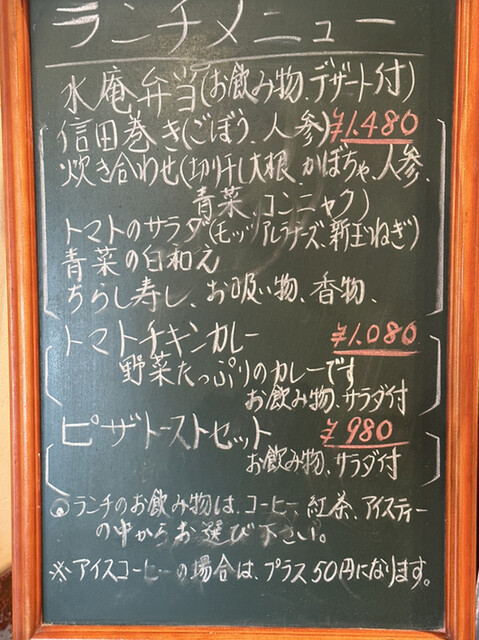 ランチメニュー
水庵弁当(お飲み物、デザート付)
信田巻き(ごぼう、人参)¥1.480
炊き合わせ(切り干し大根、かぼちゃ、人参、
青菜、コンニャク)
トマトのサラダ(モッツァルラチーズ、新玉ねぎ)
青菜の白和え
ちらし寿し、お吸い物、香物、
トマトチキンカレー ¥1.080
野菜たっぷりのカレーです
お飲み物、サラダ付
ピザトーストセット ¥980
お飲み物、サラダ付
◎ランチのお飲み物は、コーヒー、紅茶、アイスティー
の中からお選び下さい。
※アイスコーヒーの場合は、プラス50円になります。